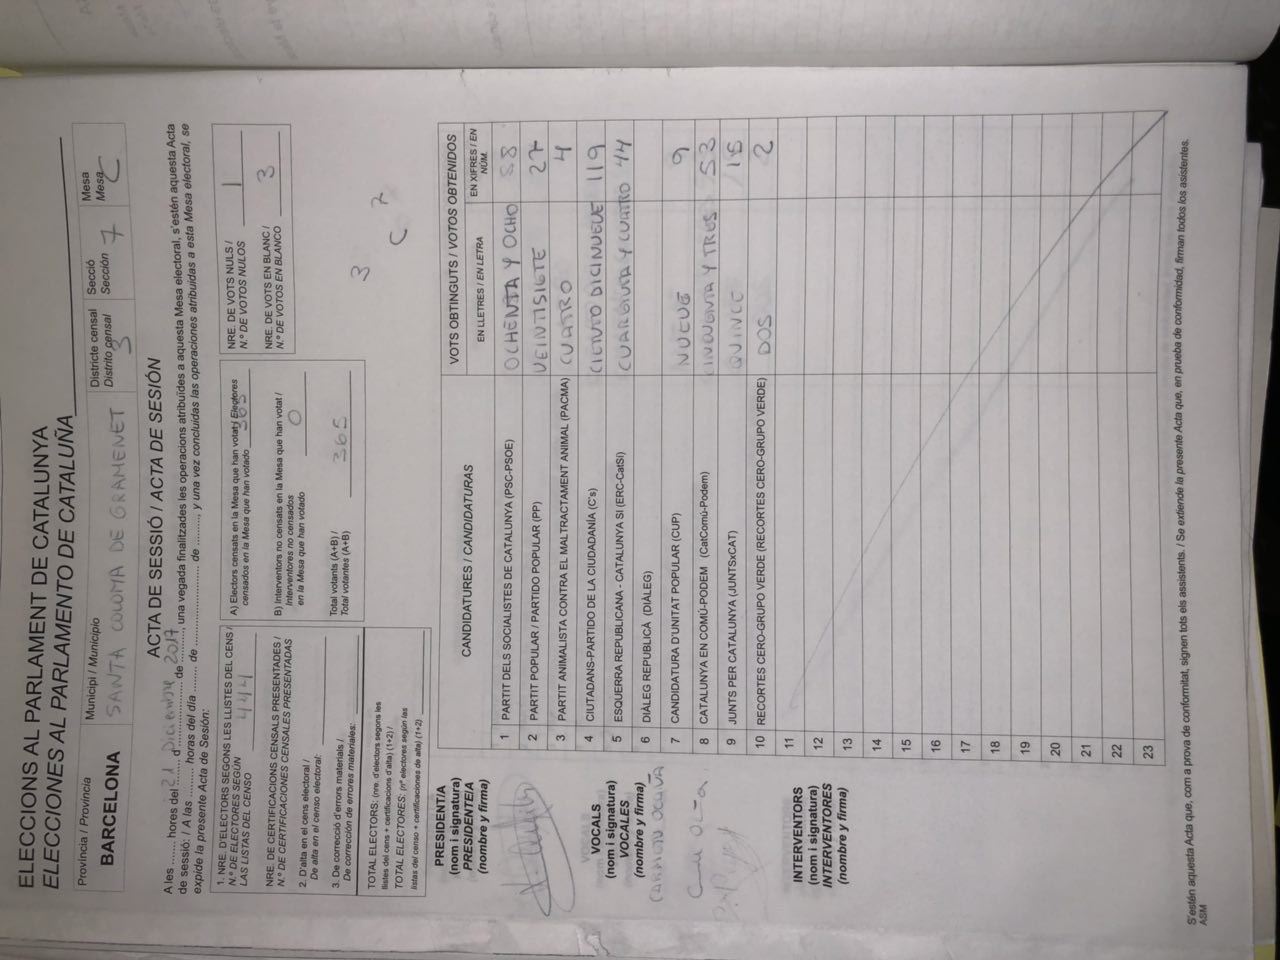 ELECCIONS AL PARLAMENT DE CATALUNYA
ELECCIONES AL PARLAMENTO DE CATALUÑA
Província / Provincia
BARCELONA
Municipi / Municipio
SANTA COLOMA DE GRAMENET
Districte censal
Distrito censal
3
Secció
Sección 7
Mesa
Mesa C
ACTA DE SESSIÓ / ACTA DE SESIÓN
A les ........ hores del 21 d' Diciembre de 2017, una vegada finalitzades les operacions atribuïdes a aquesta Mesa electoral, s'estén aquesta Acta
de sessió: / A las ........ horas del día ........ de ........ de ........, y una vez concluidas las operaciones atribuidas a esta Mesa electoral, se
expide la presente Acta de Sesión:
1. NRE. D'ELECTORS SEGONS LES LLISTES DEL CENS /
N.º DE ELECTORES SEGÚN
LAS LISTAS DEL CENSO 444
NRE. DE CERTIFICACIONS CENSALS PRESENTADES /
N.º DE CERTIFICACIONES CENSALES PRESENTADAS
2. D'alta en el cens electoral /
De alta en el censo electoral:
3. De correcció d'errors materials /
De corrección de errores materiales:
TOTAL ELECTORS: (nre. d'electors segons les
llistes del cens + certificacions d'alta) (1+2) /
TOTAL ELECTORES: (nº electores según las
listas del censo + certificaciones de alta) (1+2)
A) Electors censats en la Mesa que han votat / Electores
censados en la Mesa que han votado 365
B) Interventors no censats en la Mesa que han votat /
Interventores no censados
en la Mesa que han votado 0
Total votants (A+B) /
Total votantes (A+B) 365
NRE. DE VOTS NULS /
N.º DE VOTOS NULOS 1
NRE. DE VOTS EN BLANC /
N.º DE VOTOS EN BLANCO 3
3 C 7
CANDIDATURES / CANDIDATURAS
VOTS OBTINGUTS / VOTOS OBTENIDOS
EN LLETRES / EN LETRA
EN XIFRES / EN NÚM.
1 PARTIT DELS SOCIALISTES DE CATALUNYA (PSC-PSOE) OCHENTA Y OCHO 88
2 PARTIT POPULAR / PARTIDO POPULAR (PP) VEINTISIETE 27
3 PARTIT ANIMALISTA CONTRA EL MALTRACTAMENT ANIMAL (PACMA) CUATRO 4
4 CIUTADANS-PARTIDO DE LA CIUDADANÍA (C's) CIENTO DICINUEVE 119
5 ESQUERRA REPUBLICANA - CATALUNYA SI (ERC-CatSí) CUARENTA Y CUATRO 44
6 DIÀLEG REPUBLICÀ (DIÀLEG)
7 CANDIDATURA D'UNITAT POPULAR (CUP) NUEVE 9
8 CATALUNYA EN COMÚ-PODEM (CatComú-Podem) CINCUENTA Y TRES 53
9 JUNTS PER CATALUNYA (JUNTSxCAT) QUINCE 15
10 RECORTES CERO-GRUPO VERDE (RECORTES CERO-GRUPO VERDE) DOS 2
11
12
13
14
15
16
17
18
19
20
21
22
23
PRESIDENT/A
(nom i signatura)
PRESIDENTE/A
(nombre y firma)
VOCALS
(nom i signatura)
VOCALES
(nombre y firma)
INTERVENTORS
(nom i signatura)
INTERVENTORES
(nombre y firma)
S'estén aquesta Acta que, com a prova de conformitat, signen tots els assistents. / Se extiende la presente Acta que, en prueba de conformidad, firman todos los asistentes.
ASM